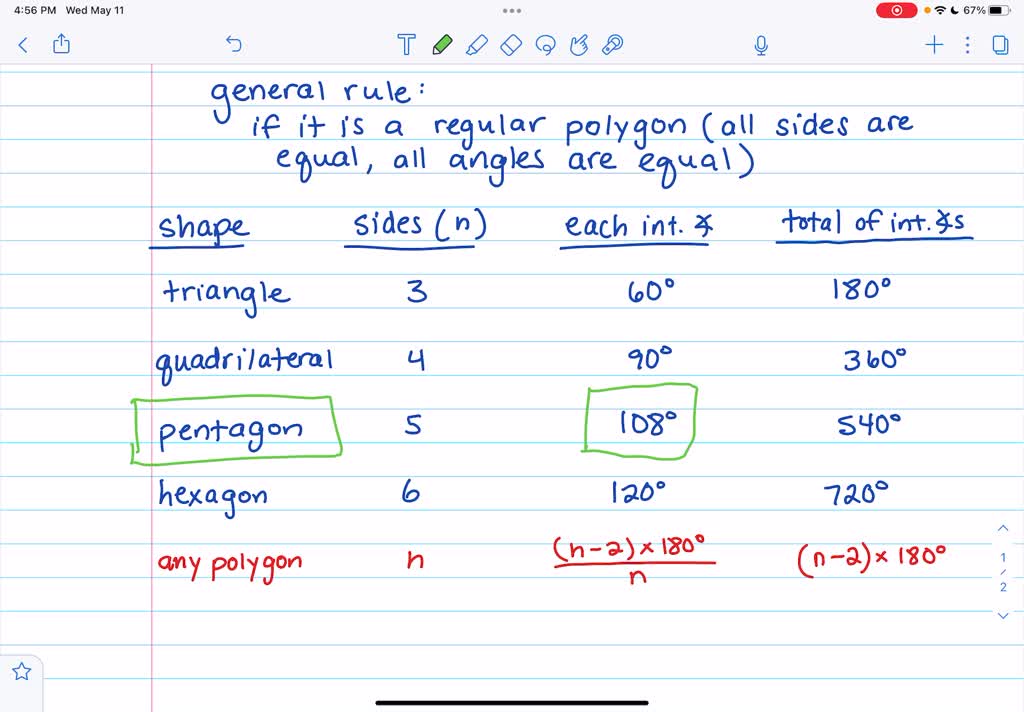 4:56 PM Wed May 11 67%
general rule:
if it is a regular polygon (all sides are
equal, all angles are equal)
shape sides (n) each int. ∡ total of int. ∡s
triangle 3 60° 180°
quadrilateral 4 90° 360°
pentagon 5 108° 540°
hexagon 6 120° 720°
any polygon n (n-2) × 180° / n (n-2) × 180°
1
/
2